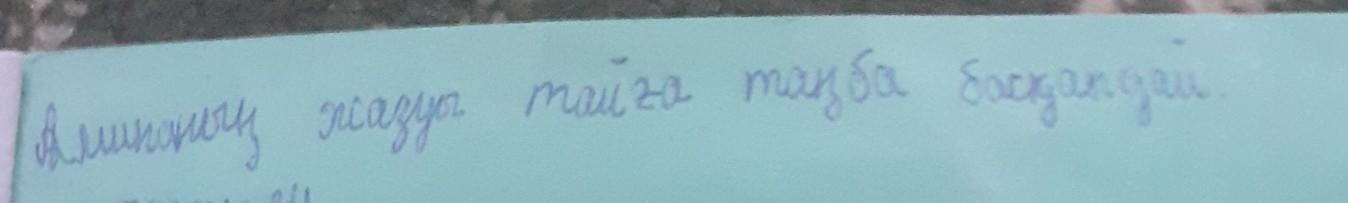 Аминаның жазуы тайға таңба басқандай.